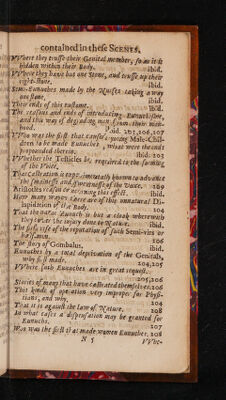 contained in these SCENES.
VVhere they trusse their Genital member, so as it is
hidden within their Body. ibid.
VVhere they have but one Stone, and trusse up their
right-stone. ibid.
Semi-Eunuches made by the Nurses taking away
one stone, ibid.
Their ends of this custome. ibid.
The reasons and ends of introducing Eunuchisme,
and this way of degrading men from their man-
hood. ibid. 201,206,107
VVho was the first that caused young Male-Chil-
dren to be made Eunuches, what were the ends
propounded therein. ibid. 203
VVhether the Testicles be required to the forming
of the Voice. ibid.
That Castration is experimentally known to advance
the smalnesse and sweetnesse of the Voice. 209
Aristotles concerning this effect. ibid.
How many wayes there are of this unnatural Di-
lapidation of the Body. 104
That the bare Eunuch is but a cloak wherewith
they cover the injury done to Nature. ibid.
The first rise of the reputation of such Semi-virs or
half-men. 106
The story of Gombalus. ibid.
Eunuches by a total deprivation of the Genitals,
why first made. 204,205
VVhere such Eunuches are in great request.
205,206
Stories of many that have castrated themselves. 206
This kind of operation very improper for Physi-
tians, and why. 104
That it is against the law of Nature. 208
In what cases a dispensation may be granted for
Eunuchs. 107
Who was the first that made women Eunuches. 208
N 5 VVhe-